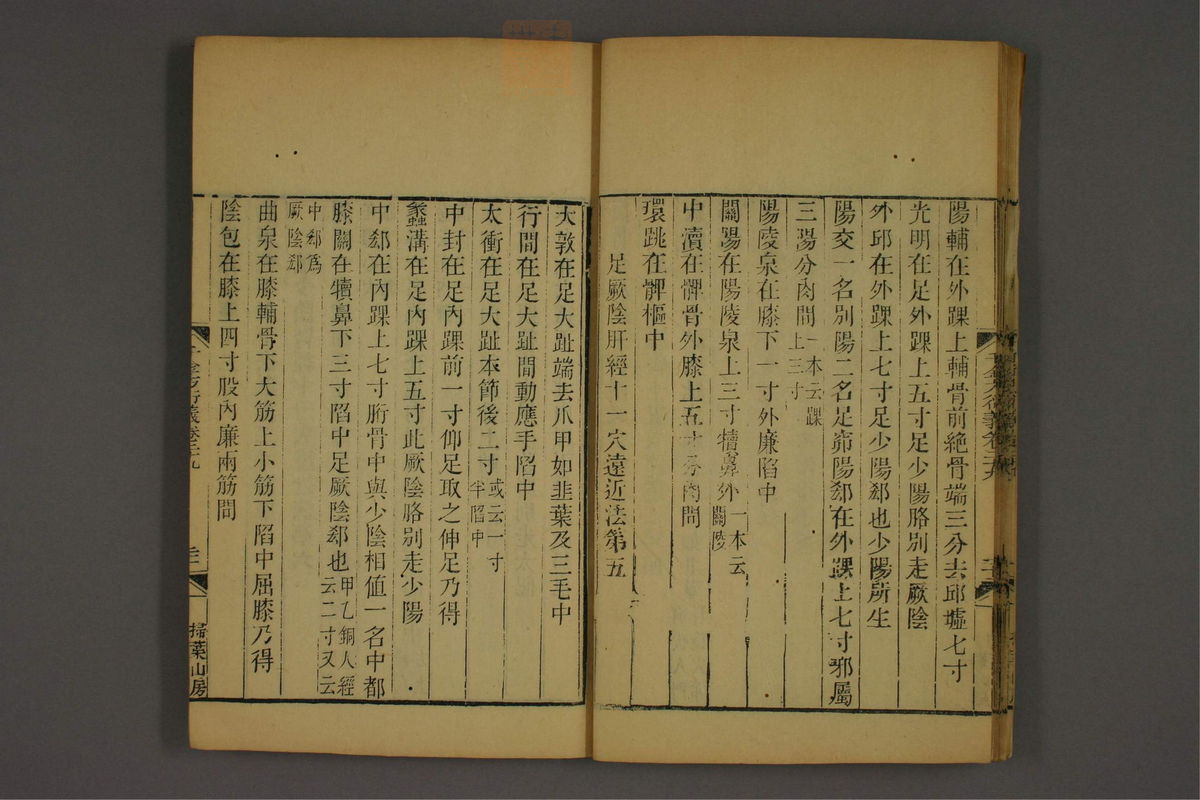 陽輔在外踝上輔骨前絕骨端三分去邱墟七寸
光明在足外踝上五寸足少陽胳別走厥陰
外邱在外踝上七寸足少陽郄也少陽所生
陽交一名別陽二名足窌陽郄在外踝上七寸邪屬
三陽分肉間一本云踝上三寸
陽陵泉在膝下一寸外廉陷中
關陽在陽陵泉上三寸犢鼻外一本云關陵
中瀆在髀骨外膝上五寸分肉間
環跳在髀樞中
足厥陰肝經十一穴遠近法第五
大敦在足大趾端去爪甲如韭葉及三毛中
行間在足大趾間動應手陷中
太衝在足大趾本節後二寸或云一寸半陷中
中封在足內踝前一寸仰足取之伸足乃得
蠡溝在足內踝上五寸此厥陰胳別走少陽
中郄在內踝上七寸胻骨中與少陰相値一名中都
膝關在犢鼻下三寸陷中足厥陰郄也甲乙銅人經云二寸又云
中郄爲厥陰郄
曲泉在膝輔骨下大筋上小筋下陷中屈膝乃得
陰包在膝上四寸股內廉兩筋間
千金方衍義卷二十九
掃葉山房